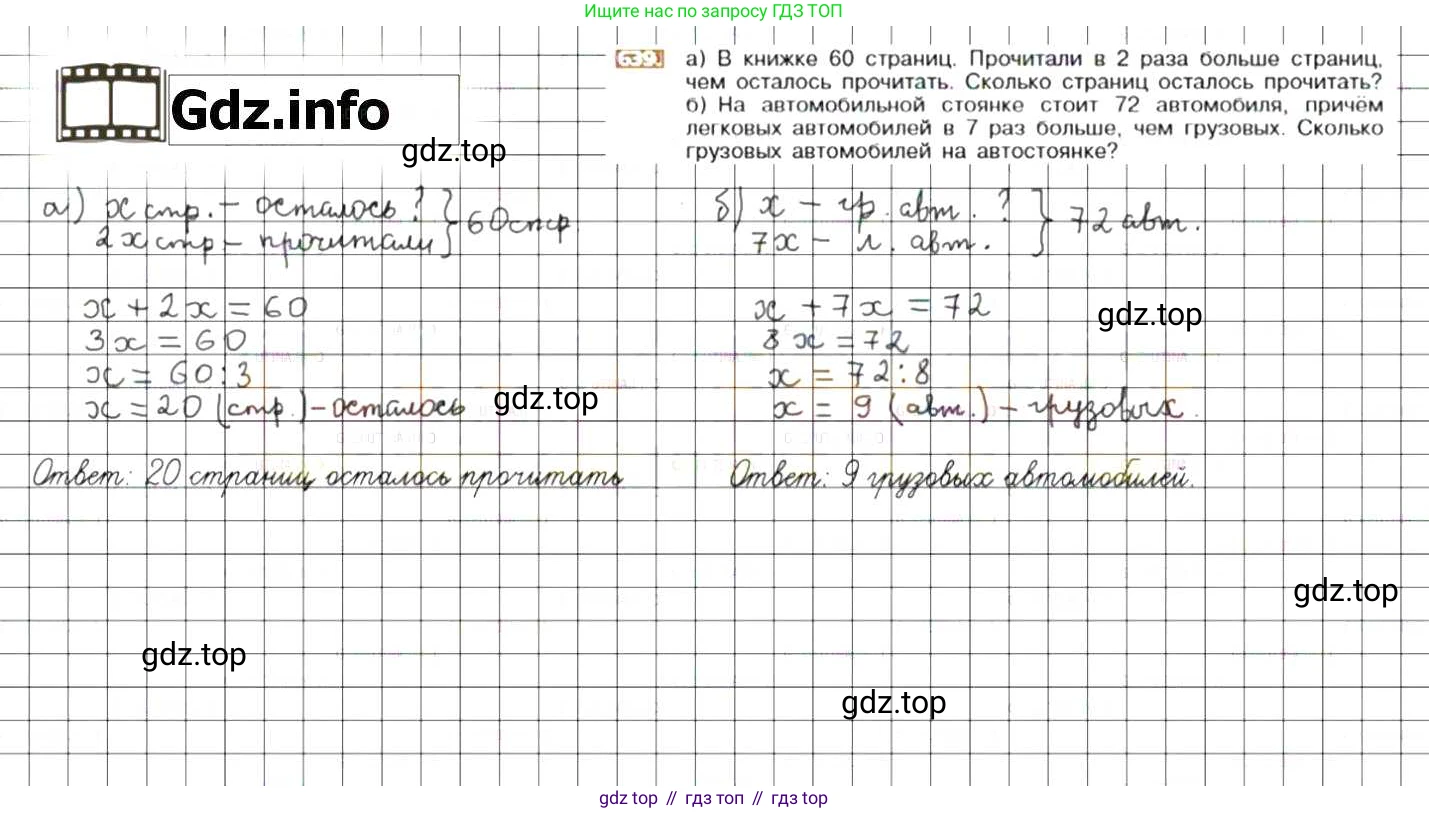 Ищите нас по запросу ГДЗ ТОП
639.
а) В книжке 60 страниц. Прочитали в 2 раза больше страниц,
чем осталось прочитать. Сколько страниц осталось прочитать?
б) На автомобильной стоянке стоит 72 автомобиля, причём
легковых автомобилей в 7 раз больше, чем грузовых. Сколько
грузовых автомобилей на автостоянке?
Gdz.info
gdz.top
а) x стр. – осталось ? } 60 стр.
2x стр – прочитали
x + 2x = 60
3x = 60
x = 60:3
x = 20 (стр.) – осталось
gdz.top
Ответ: 20 страниц осталось прочитать
б) x – гр. авт. ? } 72 авт.
7x – л. авт.
x + 7x = 72
gdz.top
8x = 72
x = 72:8
x = 9 (авт.) – грузовых.
Ответ: 9 грузовых автомобилей.
gdz.top
gdz.top
gdz.top
gdz top // гдз топ // gdz.top